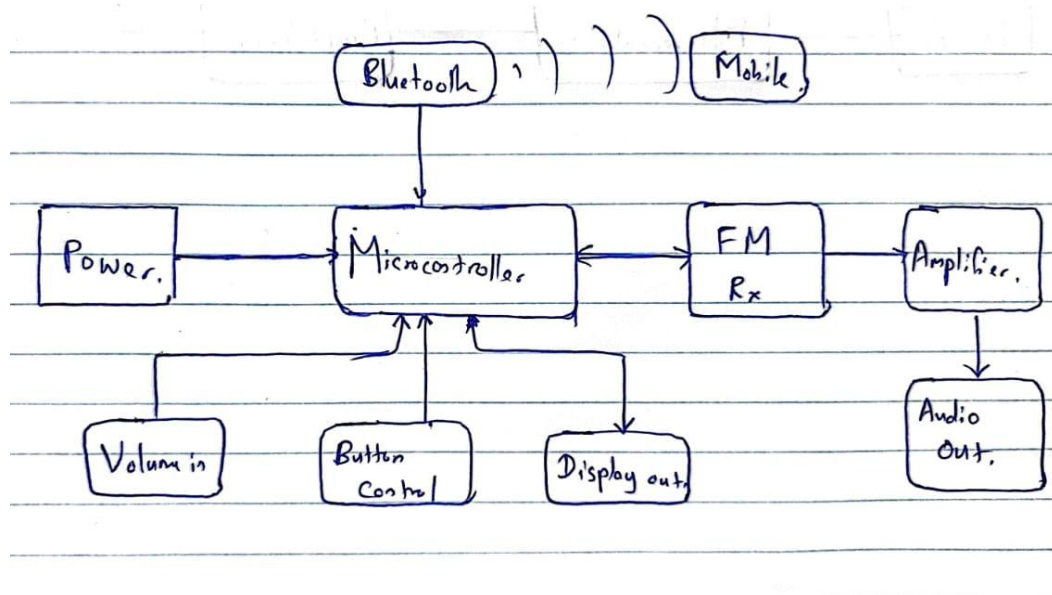 Bluetooth
Mobile.
Power.
Microcontroller
FM
Rx
Amplifier.
Volume in
Button
Control
Display out.
Audio
Out.